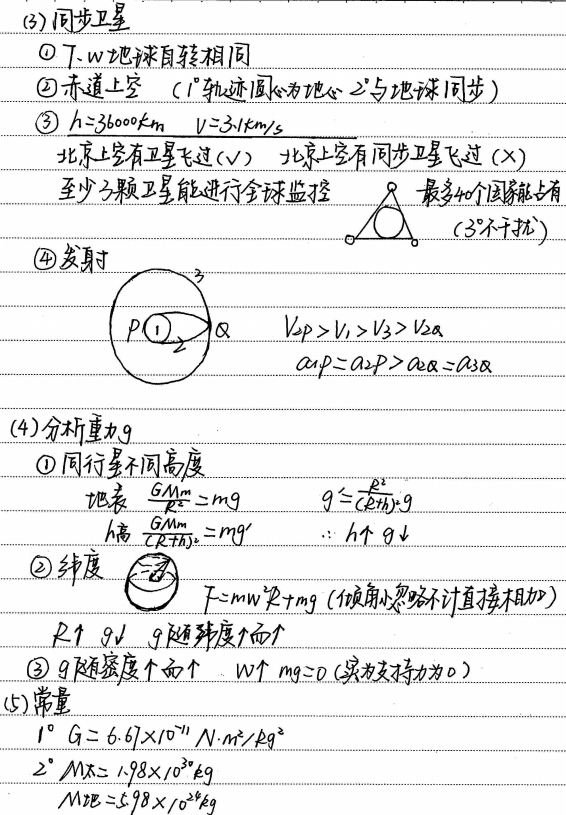 (3) 同步卫星
① T、w 地球自转相同
② 赤道上空 (1°轨迹圆心为地心 2°与地球同步)
③ h=36000km V=3.1km/s
北京上空有卫星飞过(√) 北京上空有同步卫星飞过(×)
至少3颗卫星能进行全球监控 最多40个国家能占有
(3°不干扰)
④ 发射
3
P 1 Q
2
V₂P>V₁>V₃>V₂Q
a₁P=a₂P>a₂Q=a₃Q
(4) 分析重力g
① 同行星不同高度
地表 GMm/R²=mg g'=R²/(R+h)²·g
h高 GMm/(R+h)²=mg' ∴ h↑ g↓
② 纬度
F=mw²R+mg (倾角小忽略不计直接相加)
R↑ g↓ g随纬度↑而↑
③ g随密度↑而↑ w↑ mg=0 (实为支持力为0)
(5) 常量
1° G=6.67×10⁻¹¹ N·m²/kg²
2° M太=1.98×10³⁰kg
M地=5.98×10²⁴kg